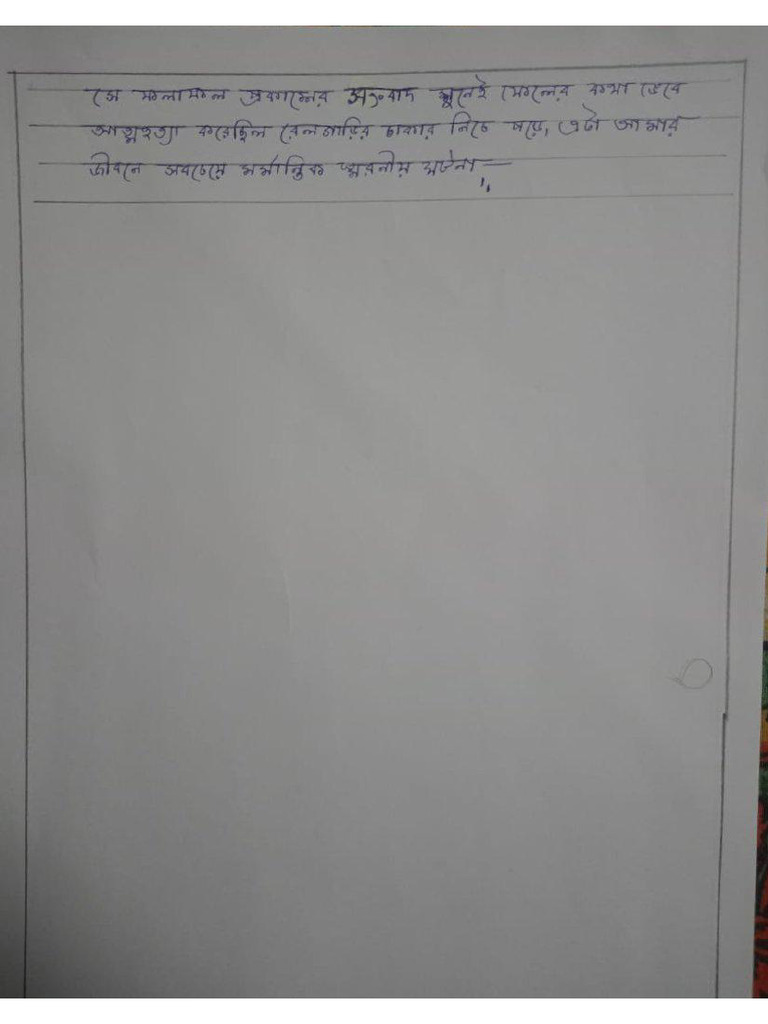 সে ফলাফল প্রকাশের সংবাদ শুনেই ফেলের কথা ভেবে
আত্মহত্যা করেছিল রেলগাড়ির চাকার নিচে পড়ে, এটা আমার
জীবনে সবচেয়ে মর্মান্তিক স্মরনীয় ঘটনা —